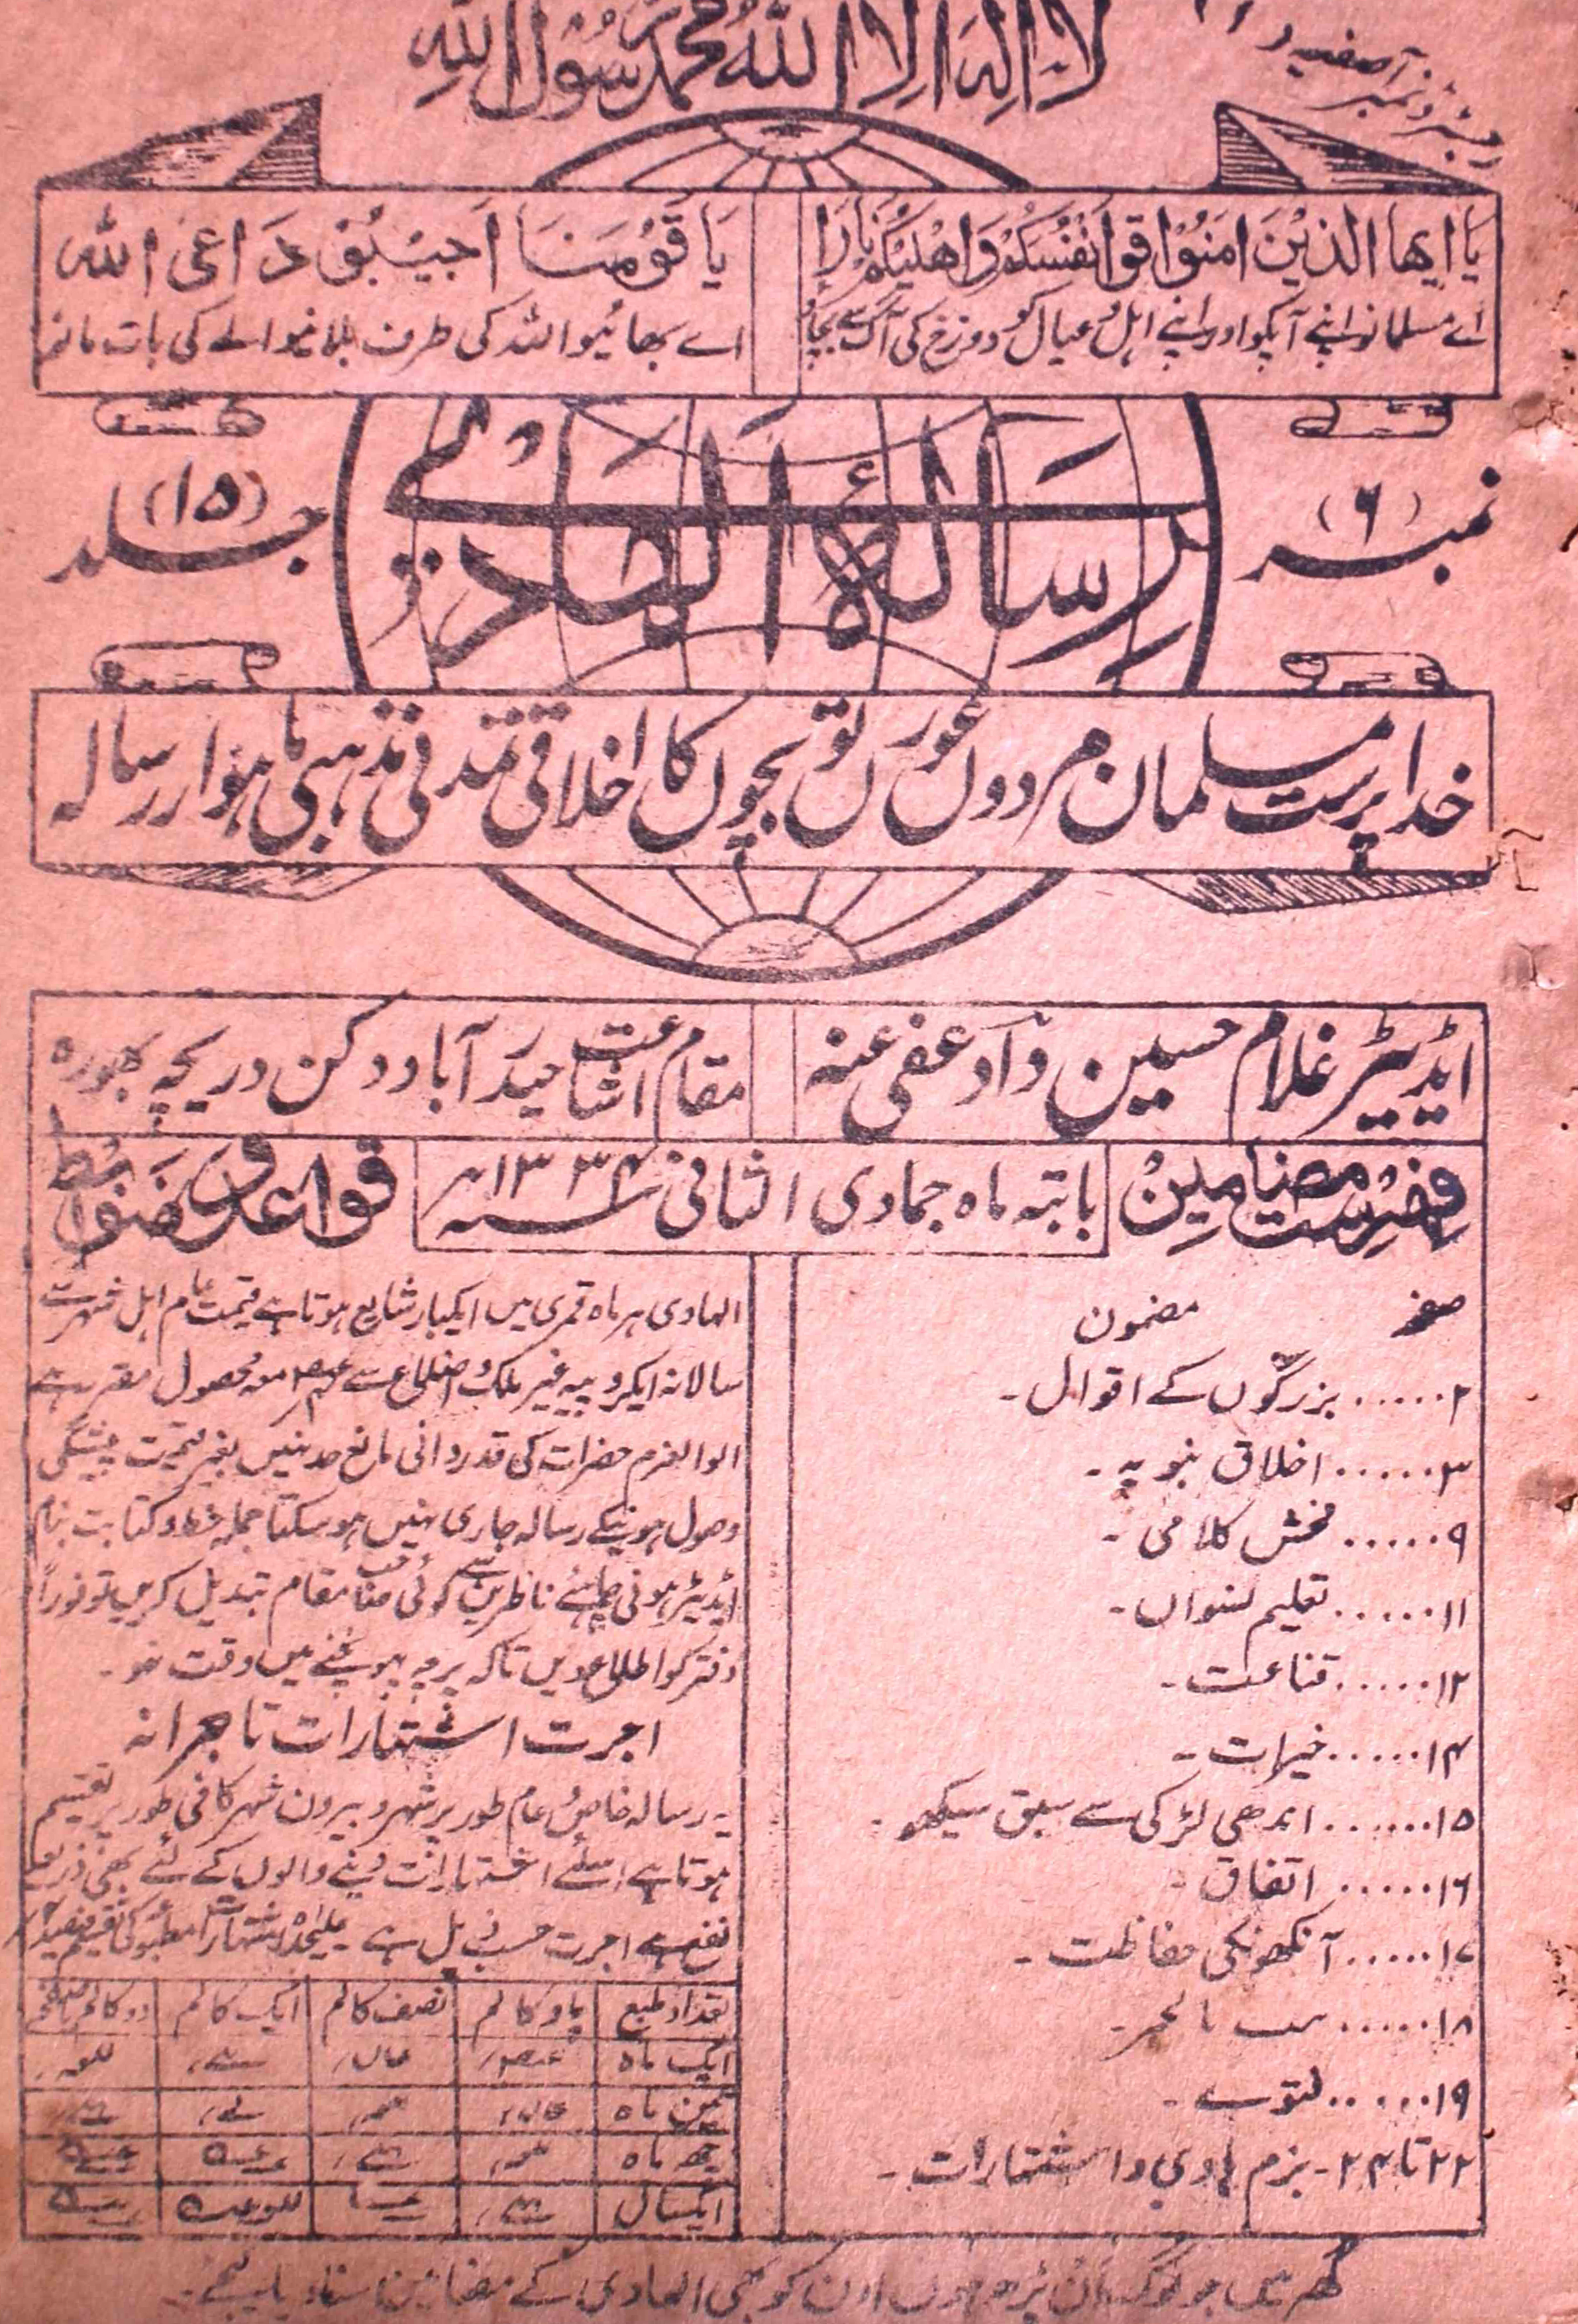 لا اله الا الله محمد رسول الله
رجسٹرڈ نمبر آصفیہ
یَا ایھا الذیْنَ امَنُوْا قوا انفُسَکُمْ وَاھْلِیْکُمْ نَارًا
اے مسلمانو اپنے آپکو اور اپنے اہل و عیال کو دوزخ کی آگ سے بچاؤ
یَا قَوْمَنَا اَجِیْبُوْ دَاعِیَ اللہ
اے بھائیو اللہ کی طرف بلانیوالے کی بات مانو
نمبر (۶)
رسالۂ الہادی
جلد (۱۵)
خدا پرست مسلمان مردوں عورتوں بچوں کا اخلاقی تمدنی مذہبی ماہوار رسالہ
ایڈیٹر غلام حسین داؔد عفی عنہ
مقام اشاعت حیدرآباد دکن دریچہ بھورہ
فہرست مضامین
بابتہ ماہ جمادی الثانی سنہ ۱۳۳۴ھ
قواعد و ضوابط
صفحہ مضمون
۲...... بزرگوں کے اقوال ۔
۳...... اخلاق نبویہ ۔
۹...... فحش کلامی ۔
۱۱...... تعلیم نسواں ۔
۱۲...... قناعت ۔
۱۴...... خیرات ۔
۱۵...... اندھی لڑکی سے سبق سیکھو ۔
۱۶...... اتفاق ۔
۱۷...... آنکھونکی حفاظت ۔
۱۸......
۱۹...... فتوے ۔
۲۲ تا ۲۴ ۔ بزم ہادی و اشتہارات ۔
الہادی ہر ماہ قمری میں ایکبار شایع ہوتا ہے قیمت عام اہل شہر سے
سالانہ ایکروپیہ غیر ملک و اضلاع سے معہ محصول مقرر ہے
الوالعزم حضرات کی قدردانی مانع حد نہیں بغیر قیمت پیشگی
وصول ہونیکے رسالہ جاری نہیں ہوسکتا جملہ خط و کتابت بنام
ایڈیٹر ہونی چاہئے ناظرین سے کوئی صاحب مقام تبدیل کریں تو فوراً
دفتر کو اطلاع دیں تاکہ پرچہ پہونچنے میں دقت نہو ۔
اجرت اشتہارات تاجرانہ
یہ رسالہ خاص و عام طور پر شہر و بیرون شہر کافی طور پر تقسیم
ہوتا ہے اسلئے اشتہارات دینے والوں کے لئے بھی ذریعہ
نفع ہے اجرت حسب ذیل ہے علیحدہ اشتہارات مطبوعہ کی تقسیم
تعداد طبع پاؤ کالم نصف کالم ایک کالم دو کالم
ایک ماہ
تین ماہ
چھ ماہ
ایکسال
گھر میں جو لوگ ان پڑھ ہوں اون کو بھی الہادی کے مضامین سنا دیا کیجئے ۔